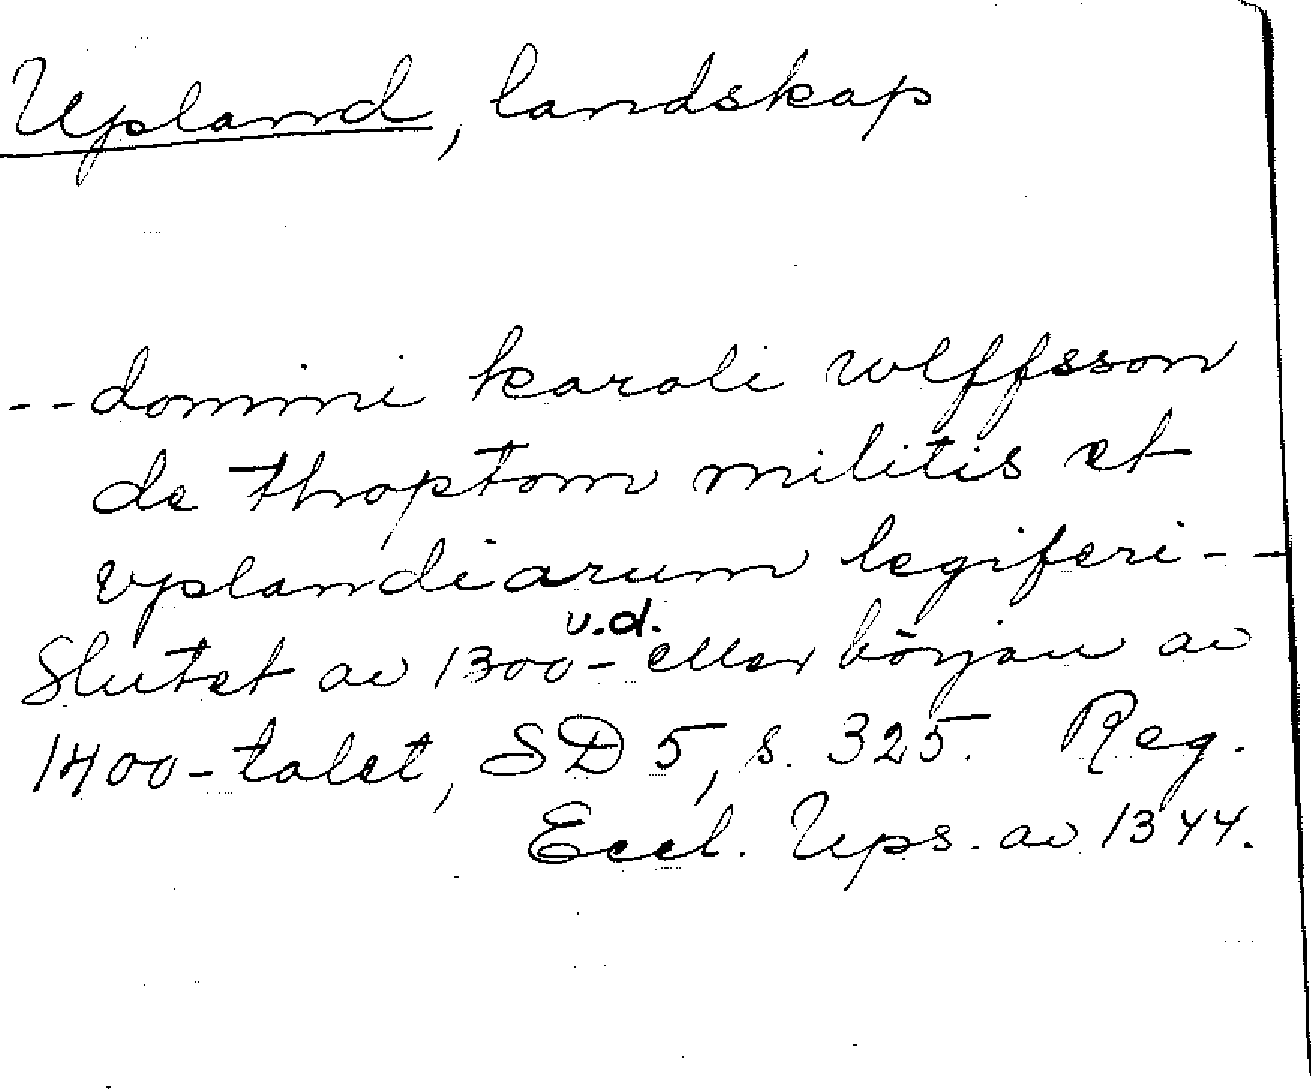 Upland, landskap
--domini karoli wlffsson
de thoptom militis et
vplandiarum legiferi--
u.d.
Slutet av 1300- eller början av
1400-talet, SD 5, s. 325. Reg.
Eccl. Ups. av 1344.